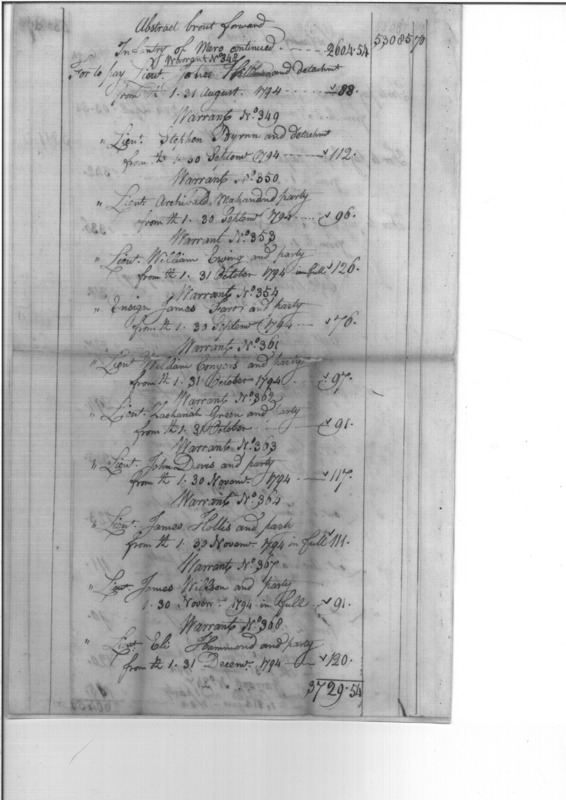 Abstract brout forward 53085 70
Infantry of Maro continued 2604.54
Warrant No 348
For to pay Lieut. and detachmt
from th 1. 31 August. 1794 88.
Warrant No. 349
" Lieut. Stephen and detachmt
from the 1. 30 Septem 1794 112.
Warrant No 350
" Lieut Archibald Mahan and party
from th 1. 30 Septem 1794 96.
Warrant No. 353
" Lieut. William Ewing and party
from th 1. 31 October 1794 in full 126.
Warrant No 354
" Ensign James and party
from th 1. 30 Septem 1794 76.
Warrant No. 361
" Lieut William Conyers and party
from th 1. 31 October 1794. 97.
Warrant No 362
" Lieut. Zachariah Green and party
from th 1. 31 October 91.
Warrant No 363
" Lieut. John Davis and party
from th 1. 30 Novem. 1794 117.
Warrant No 364
" Lieut. James Hollis and party
from th 1. 30 Novem. 1794 in full 111.
Warrant No. 367
" Lieut James Willson and party
1. 30 Novem. 1794 in full 91.
Warrant No. 368
" Lieut. Eli Hammond and party
from th 1. 31 Decem. 1794 120.
3729.54